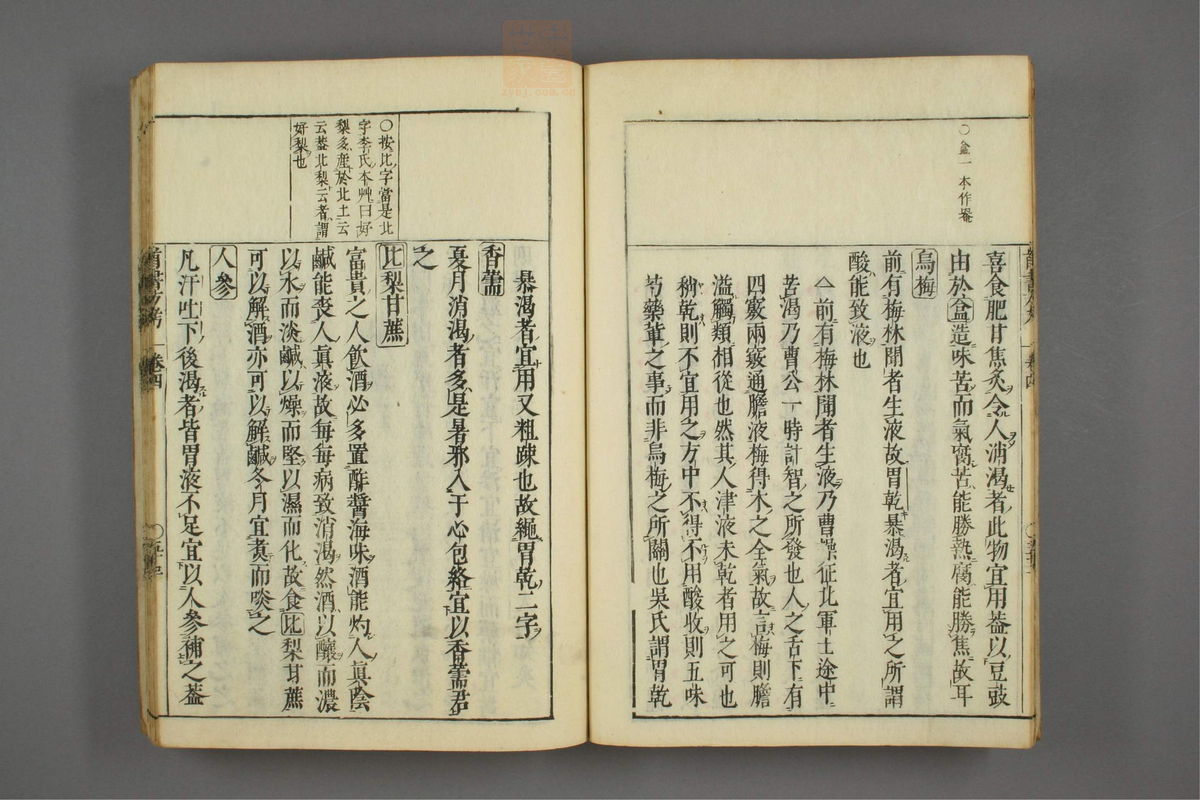 ○盒一本作罨
喜食肥甘焦炙令人消渴者此物宜用葢以豆豉
由於盒造味苦而氣腐苦能勝熱腐能勝焦故耳
烏梅
前有梅林聞者生液故胃乾暴渴者宜用之所謂
酸能致液也
前有梅林聞者生液乃曹操征北軍士途中
苦渴乃曹公一時計智之所發也人之舌下有
四竅兩竅通膽液梅得木之全氣故言梅則膽
溢觸類相從也然其人津液未乾者用之可也
稍乾則不宜用之方中不得不用酸收則五味
芍藥輩之事而非烏梅之所關也吳氏謂胃乾
暴渴者宜用又粗疎也故繩胃乾二字
香薷
夏月消渴者多是暑邪入于心包絡宜以香薷君
之
○按比字當是北
字李氏本艸曰好
梨多產於北土云
云葢北梨云者謂
好梨也
比梨甘蔗
富貴之人飲酒必多置酢醬海味酒能灼人眞陰
鹹能喪人眞液故每每病致消渴然酒以釀而濃
以水而淡鹹以燥而堅以濕而化故食比梨甘蔗
可以解酒亦可以解鹹冬月宜煑而啖之
人參
凡汗吐下後渴者皆胃液不足宜以人參補之葢
卷四